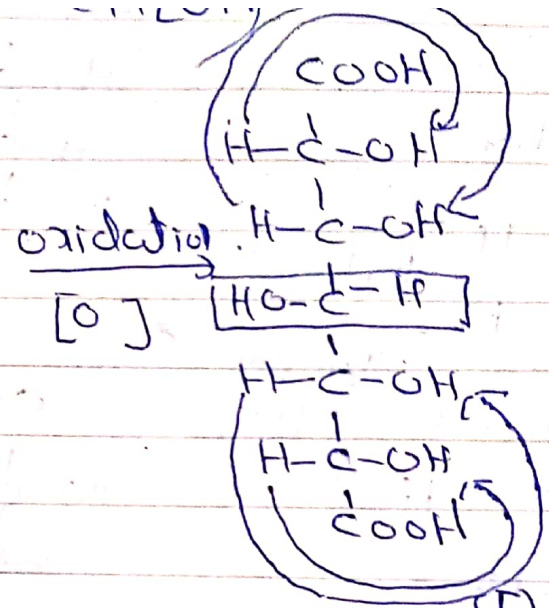 COOH
H-C-OH
oxidation H-C-OH
[O] [HO-C-H]
H-C-OH
H-C-OH
COOH
(I)